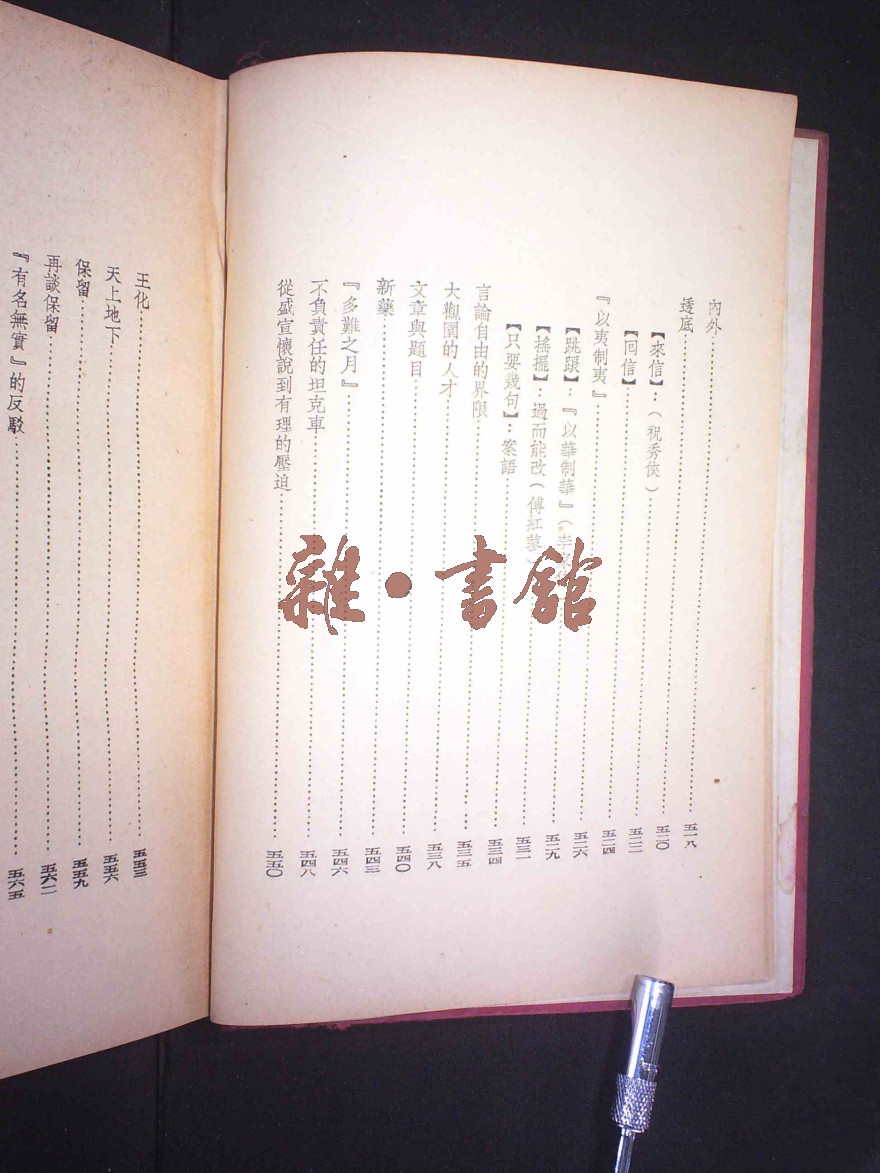 內外……五一八
透底……五二〇
【來信】：（祝秀俠）……五二二
【回信】……五二四
『以夷制夷』……五二六
【跳踉】：『以華制華』（李家……五二九
【搖擺】：過而能改（傅紅蓼）……五三一
【只要幾句】：案語……五三四
言論自由的界限……五三五
大觀園的人才……五三八
文章與題目……五四〇
新藥……五四三
『多難之月』……五四六
不負責任的坦克車……五四八
從盛宣懷說到有理的壓迫……五五〇
王化……五五三
天上地下……五五六
保留……五五九
再談保留……五六二
『有名無實』的反駁……五六五
雜·書館